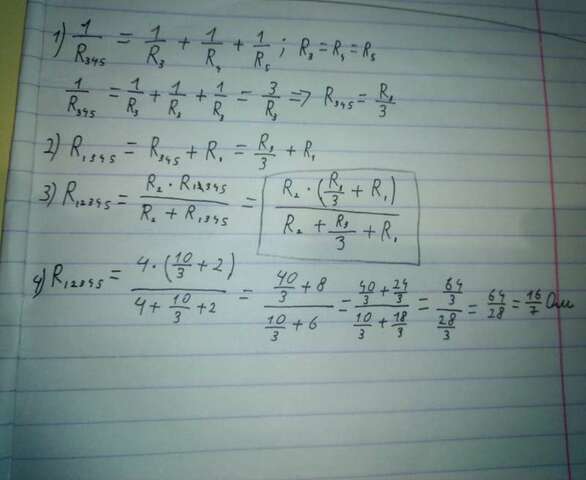 1) 1/R₃₄₅ = 1/R₃ + 1/R₄ + 1/R₅ ; R₃ = R₄ = R₅
1/R₃₄₅ = 1/R₃ + 1/R₃ + 1/R₃ = 3/R₃ => R₃₄₅ = R₃/3
2) R₁₃₄₅ = R₃₄₅ + R₁ = R₃/3 + R₁
3) R₁₂₃₄₅ = (R₂ · R₁₃₄₅)/(R₂ + R₁₃₄₅) = (R₂ · (R₃/3 + R₁))/(R₂ + R₃/3 + R₁)
4) R₁₂₃₄₅ = (4 · (10/3 + 2))/(4 + 10/3 + 2) = (40/3 + 8)/(10/3 + 6) = (40/3 + 24/3)/(10/3 + 18/3) = (64/3)/(28/3) = 64/28 = 16/7 Ом